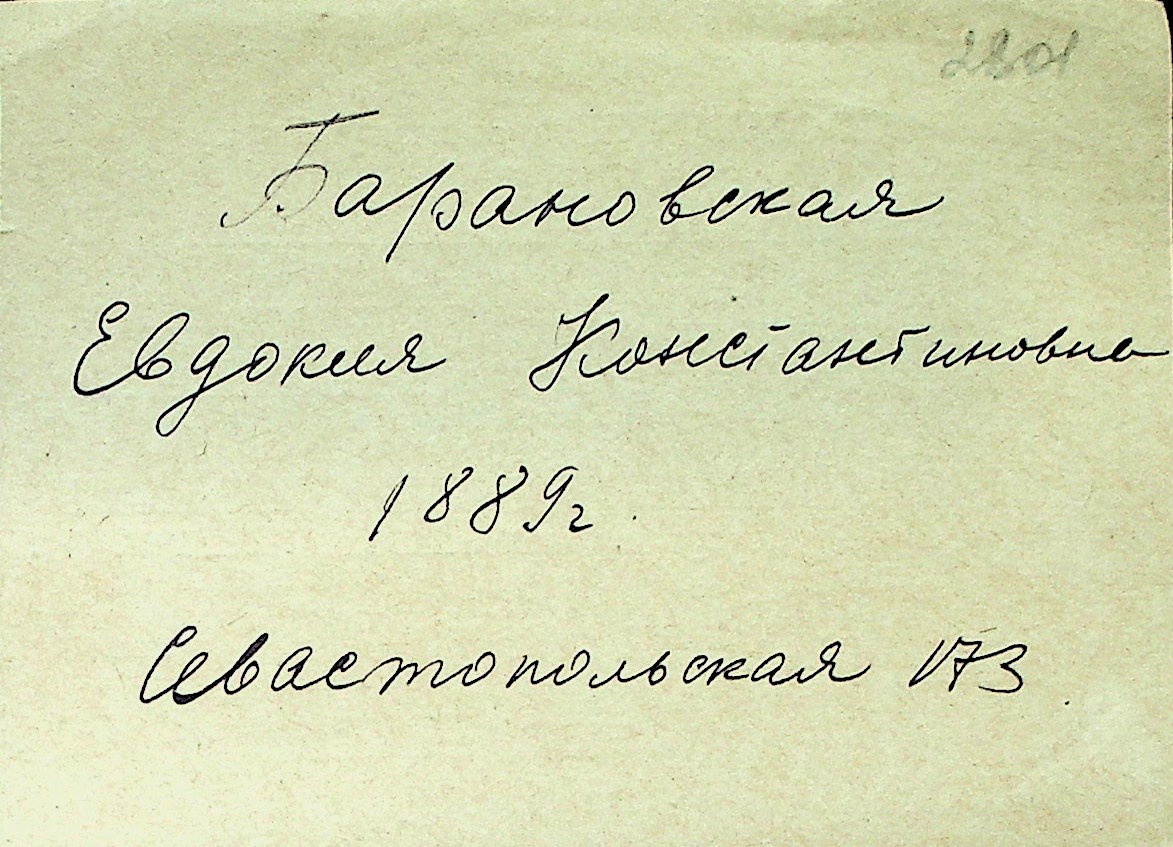 Барановская
Евдокия Константиновна
1889г.
Севастопольская 173